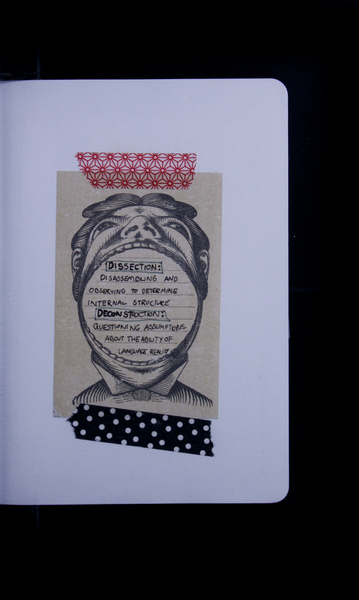 DISSECTION:
DISASSEMBLING AND
OBSERVING TO DETERMINE
INTERNAL STRUCTURE
DECONSTRUCTION:
QUESTIONING ASSUMPTIONS
ABOUT THE ABILITY OF
LANGUAGE